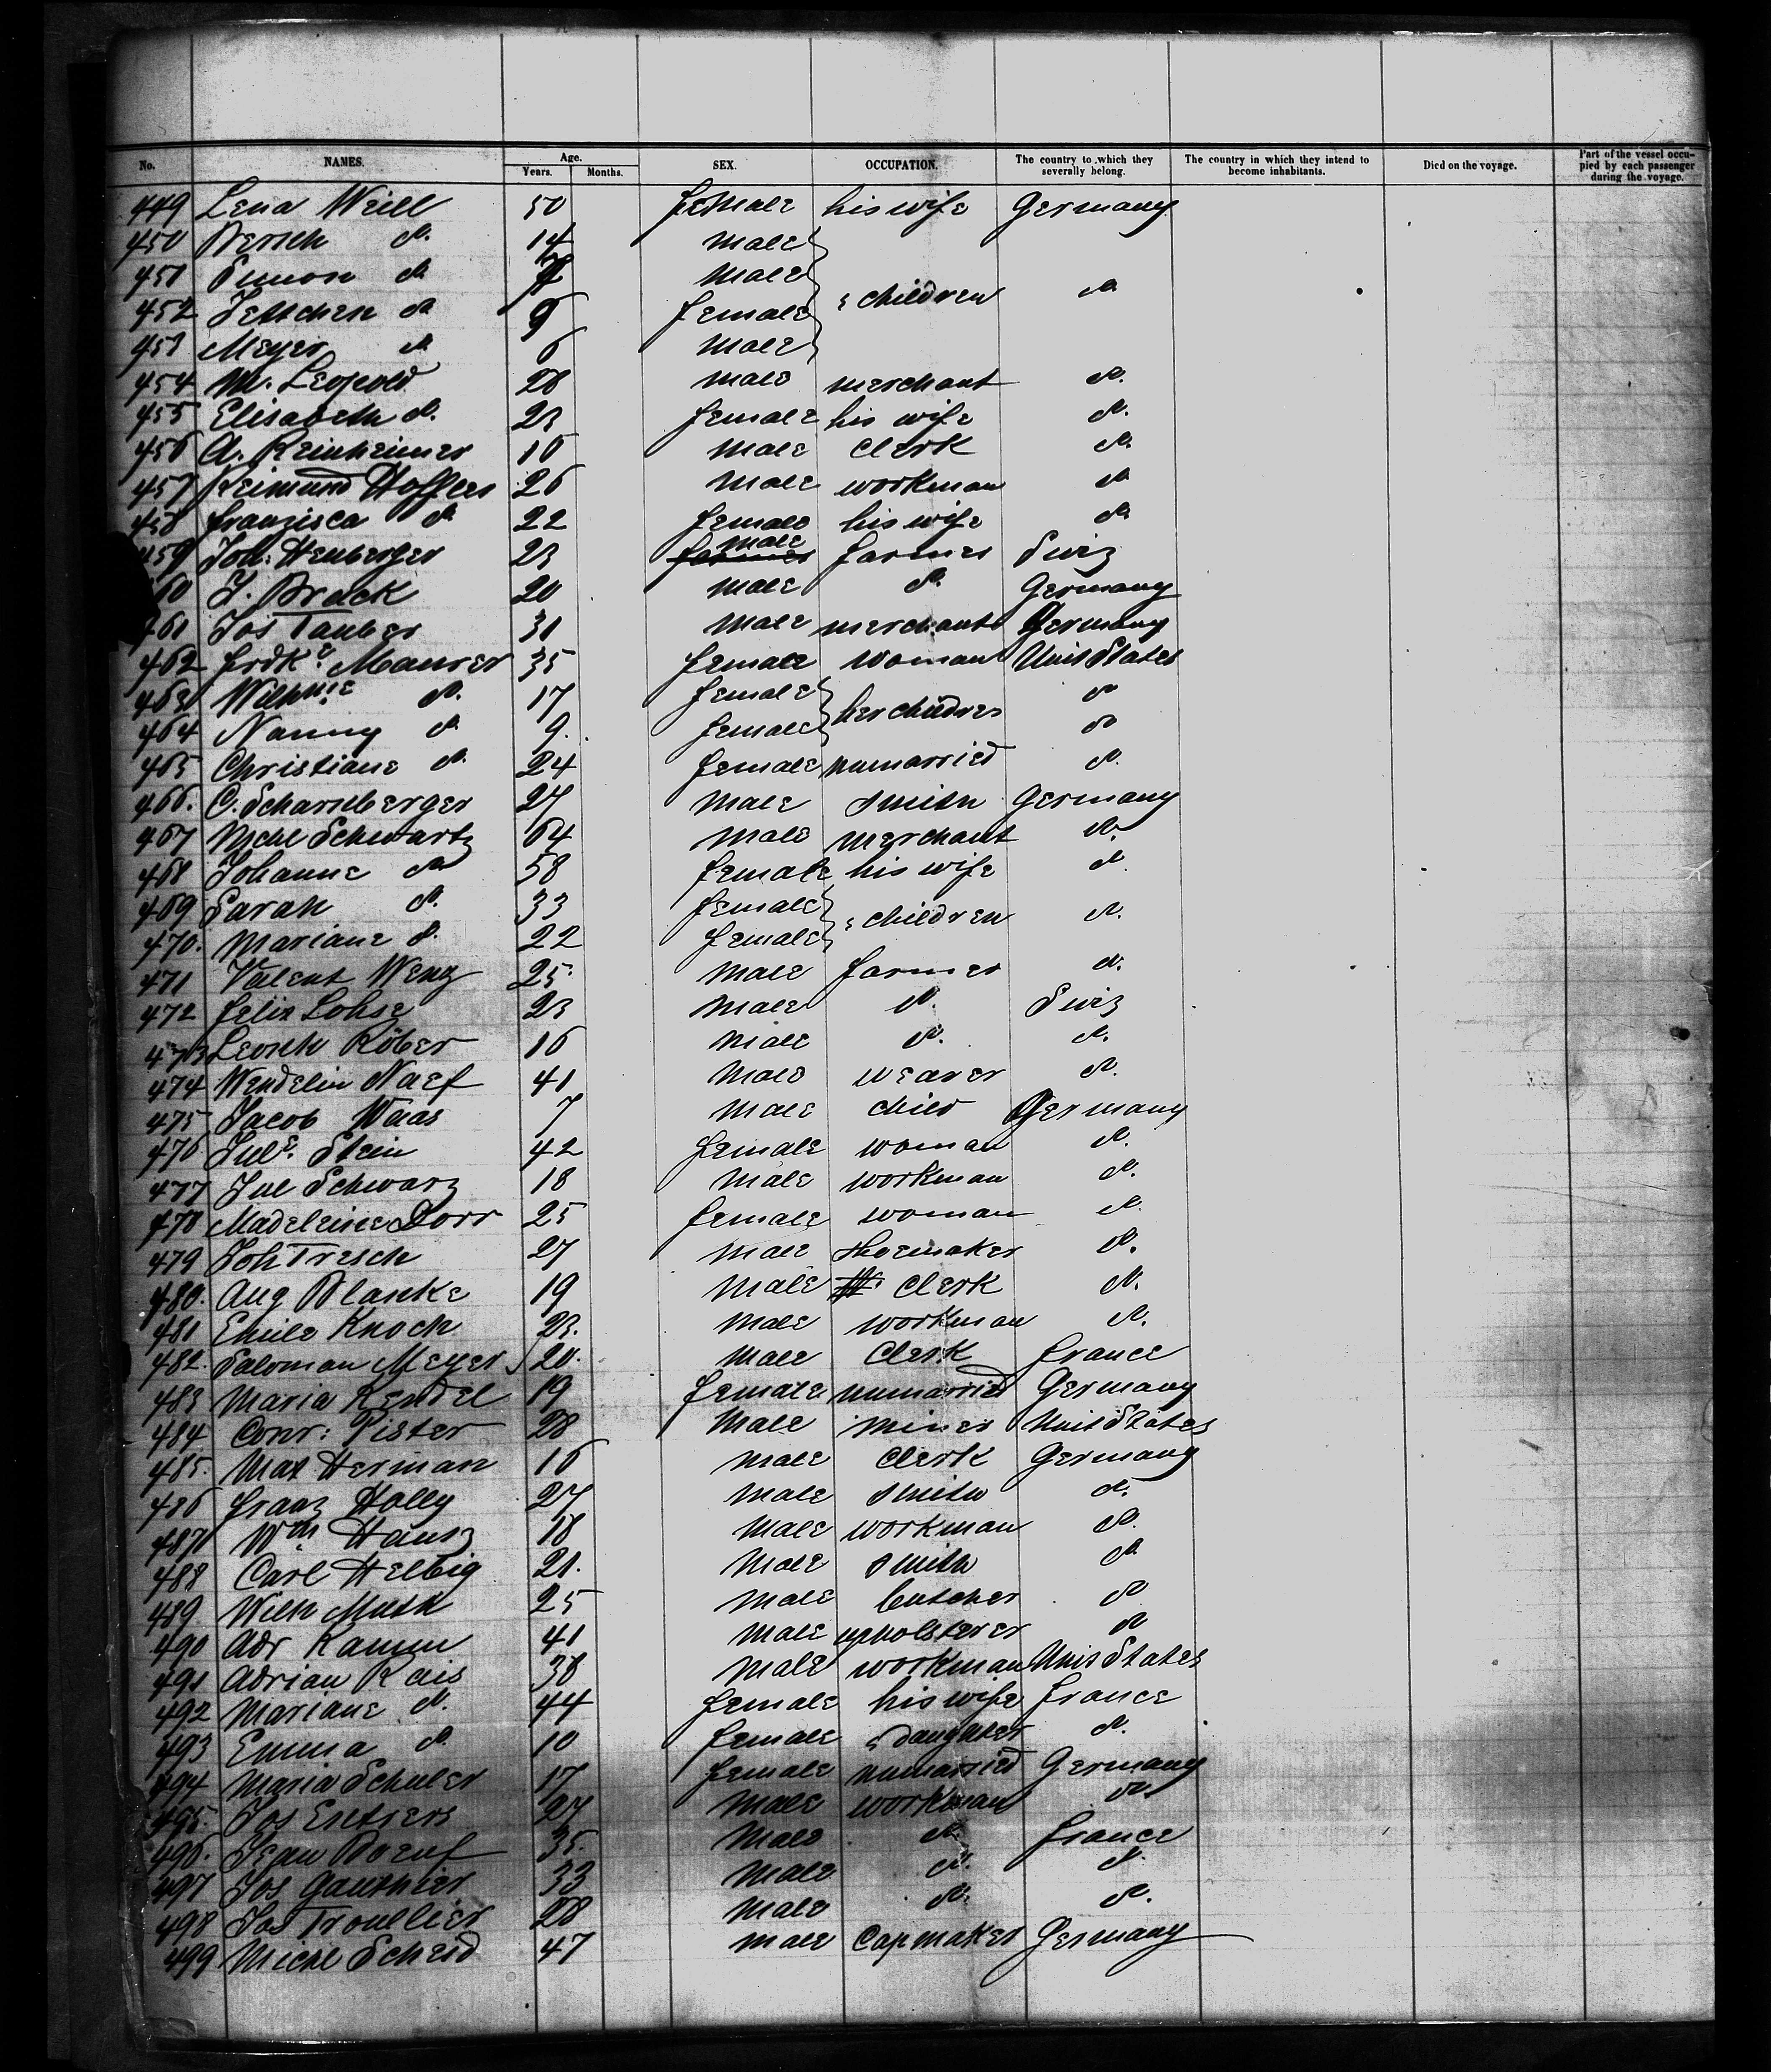 No. NAMES. Age. Years. Months. SEX. OCCUPATION. The country to which they severally belong. The country in which they intend to become inhabitants. Died on the voyage. Part of the vessel occupied by each passenger during the voyage.
449 Lena Weill 50 female his wife Germany
450 d. 14 male
451 d. male
452 Jettchen d. 9 female children d.
453 Meyer d. 6 male
454 M. Leopold 28 male merchant d.
455 Elisabeth d. 23 female his wife d.
456 A. Reinheimer 16 male clerk d.
457 Reimund Hoffers 26 male workman d.
458 Franzisca d. 22 female his wife d.
459 Joh. Henberger 23 male farmer Swiz
60 J. Brack 20 male d. Germany
461 Jos Tauber 31 male merchant Germany
462 Frdke. Maurer 35 female woman Unit States
463 Wilhme d. 17 female her children d.
464 Nanny d. 9. female d.
465 Christiane d. 24 female unmarried d.
466. C. Scharnberger 27 male smith Germany
467 Mchl Schwartz 64 male merchant d.
468 Johanne d. 58 female his wife d.
469 Sarah d. 33 female children d.
470. Mariane d. 22 female
471 Valent Wenz 25. male farmer d.
472 Felix Lohse 23 male d. Swiz
473 Röber 16 male d. d.
474 Wendelin Naef 41 male weaver d.
475 Jacob Waas 7 male child Germany
476 Jule. Stein 42 female woman d.
477 Jul Schwarz 18 male workman d.
478 Madeleine Dorr 25 female woman d.
479 Joh Tresch 27 male shoemaker d.
480. Aug Blanke 19 male clerk d.
481 Emile Knoch 23. male workman d.
482. Saloman Meyer 20. male clerk France
483 Maria Kendel 19 female unmarried Germany
484 Conr: Pister 28 male miner Unit States
485. Max Herman 16 male clerk Germany
486 Franz Holly 27 male smith d.
487 Wm Hanz 18 male workman d.
488 Carl Helbig 21. male smith d.
489 Wilh Muth 25 male butcher d.
490 Adr Kamm 41 male upholsterer d.
491 Adrian Rais 38 male workman Unit States
492 Mariane d. 44 female his wife France
493 Emma d. 10 female daughter d.
494 Maria Schuler 17 female unmarried Germany
495. Jos 27 male workman d.
496. Jean Boeuf 35. male d. France
497 Jos Gauthier 33 male d. d.
498 Jos Troullier 28 male d. d.
499 Michl Scheid 47 male Capmaker Germany